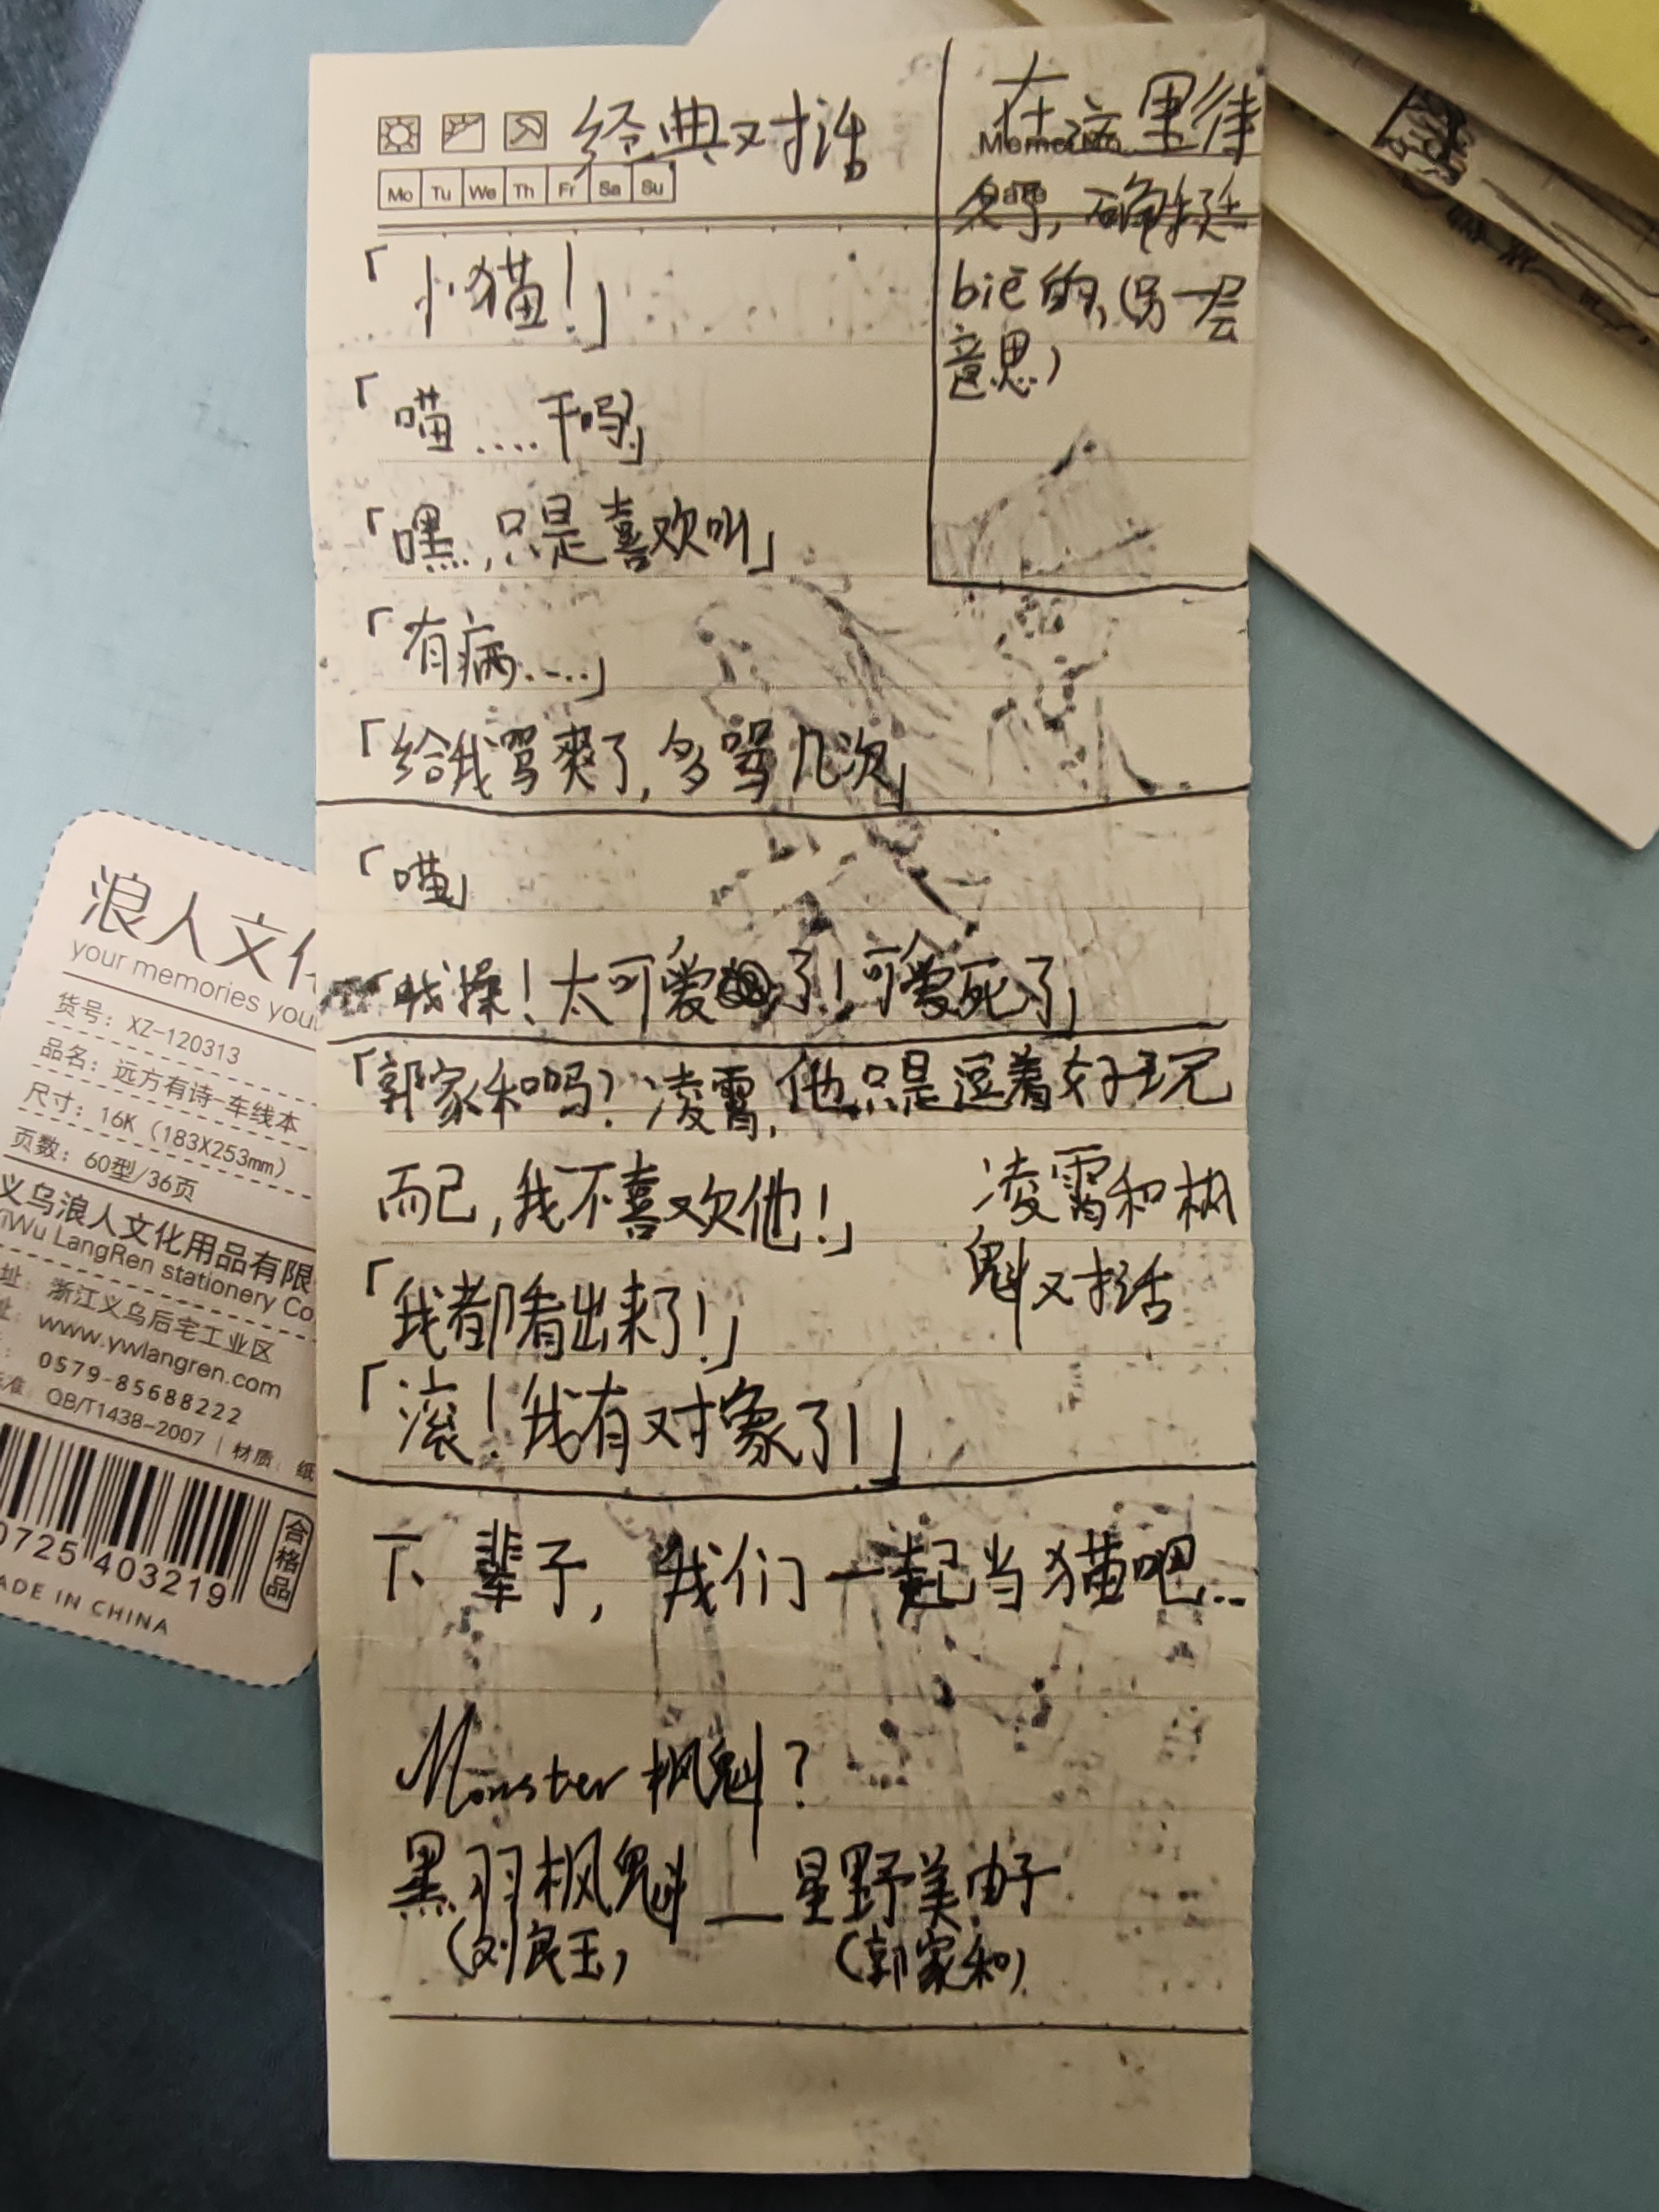 经典对话
Mo Tu We Th Fr Sa Su
在这里待
久了,确挺
biē的,(另一层
意思)
「小猫!」
「喵.....干吗」
「嘿,只是喜欢叫」
「有病.....」
「给我骂爽了,多骂几次」
「喵」
「我操!太可爱了!可爱死了」
「郭家和吗?凌霄,他只是逗着好玩
而已,我不喜欢他!」
凌霄和枫
魁对话
「我都看出来了!」
「滚!我有对象了!」
下辈子,我们一起当猫吧...
Monster 枫魁?
黑羽枫魁——星野美由子
(刘良玉) (郭家和)
浪人文化
your memories you
货号:XZ-120313
品名:远方有诗-车线本
尺寸:16K(183X253mm)
页数:60型/36页
义乌浪人文化用品有限
YiWu LangRen stationery Co
址:浙江义乌后宅工业区
址:www.ywlangren.com
0579-85688222
准:QB/T1438-2007 | 材质:纸
合格品
0725 403219
ADE IN CHINA